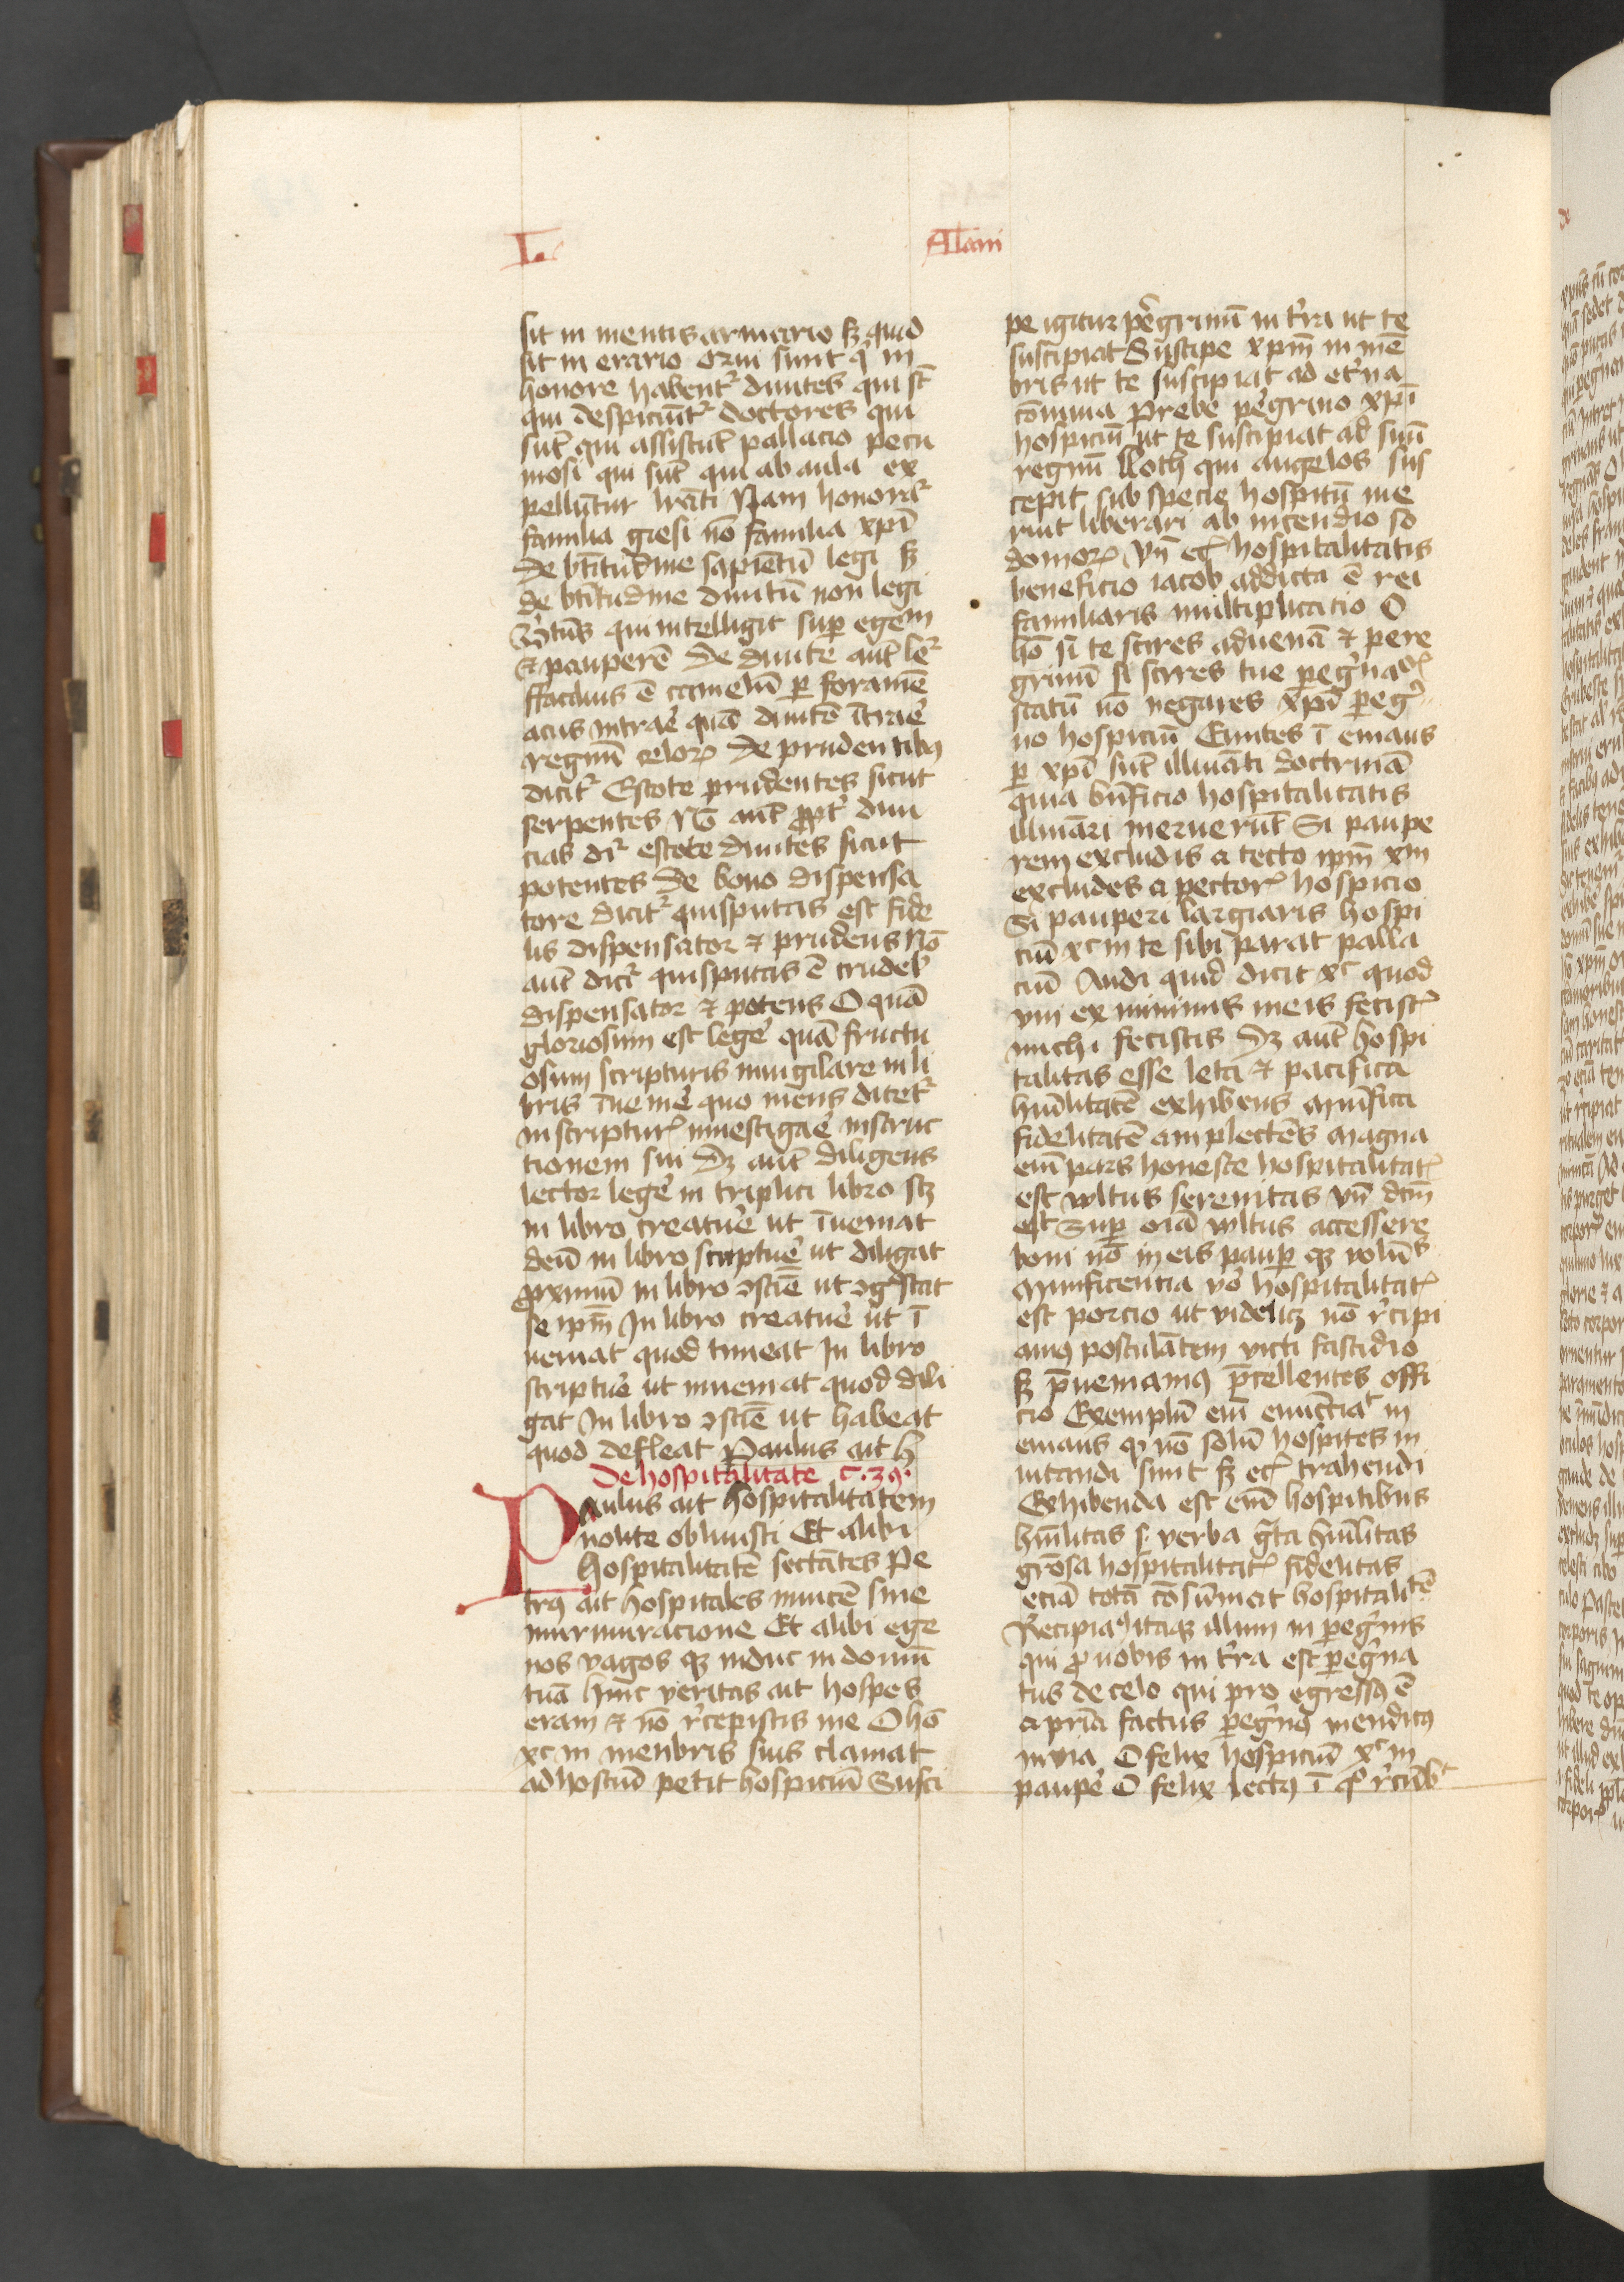 L.
Alani
sit in mentis armario sꝫ quid
sit in erario Qui sunt qͥ in
honore habentᷣ diuites qui st̄
qui despiciūtᷣ doctores qui
sūt qui assistūt pallacio pecu
niosi qui sūt qui ab aula ex
pellūtur lr̄ati Nam honoratᷣ
familia giesi nō familia xp̄i
De btītudīne sapiētū legi sꝫ
de btītudine diuitū non legi
Btūs qui intelligit suꝑ egem̄
⁊ pauperē De diuite aūt leᷣ
ffacilius ē camelū ꝑ foramē
acus intrare quā diuitē ītrare
regnū celoꝝ De prudentibꝫ
dicitᷣ Estote prudentes sicut
serpentes Nō aūt ꝓptᷣ diui
cias drᷣ estote diuites sicut
potentes De bono dispensa
tore dicitᷣ quisputas est fide
lis dispensator ⁊ prudens Nō
aūt dicᷣ quisputas ē crudelꝭ
dispensator ⁊ potens O quā
gloriosum est legere quā fructu
osum scripturis inuigilare in li
bris īuenire quo mens diteᷣ
in scripturꝭ inuestigare instruc
tionem sui Dꝫ aūt diligens
lector legere in triplici libro scꝫ
in libro creature ut īueniat
deū in libro scripture ut diligat
ꝓximū in libro ꝯscīē ut ꝯgͦscat
se ip̄m In libro creature ut ī
ueniat quod timeat In libro
scripture ut inueniat quod dili
gat In libro ꝯscīē ut habeat
quod defleat Paulus ait h
De hospitalitate c. 39.
Paulus ait hospitalitatem
nolite obliuisci Et alibi
hospitalitatē sectātes Pe
trꝰ ait hospitales inuicē sine
murmuracione Et alibi ege
nos vagos qꝫ induc in domū
tuā hinc veritas ait hospes
eram ⁊ nō recepistis me O hō
xc in menbris suis clamat
ad hostiū petit hospiciū Susci
pe igitur peregrinū in tr̄ra ut te
suscipiat Suscipe xpm̄ in mē
bris ut te suscipiat ad etᷣna
cōmina Prebe pegrino xp̄i
hospiciū ut te suscipiat ad suū
regnū lloth qui angelos sus
cepit sub specie hospitū me
ruit liberari ab incendio so
domoꝝ Vn̄ ecꝭ hospitalitatis
beneficio iacob addicta ē rei
familiaris multiplicatio O
hō si te scires aduenā ⁊ pere
grinū si scires tue pegrinacōꝭ
statū nō negares xp̄o peg͛
no hospiciū Euntes ī emaus
ꝑ xp̄i sūt illuīati doctrinā
quia bn̄ficio hospitalitatis
illuīari meruerūt Si paupe
rem excludis a tecto ip̄m xm̄
excludes a pectorꝭ hospicio
Si pauperi largiaris hospi
ciū xc in te sibi parat palla
ciū Audi quid dicit xc quod
vni ex minimis meis fecistꝭ
michi fecistis Dꝫ aūt hospi
talitas esse leta ⁊ pacifica
humilitatē exhibens munifica
fidelitatē amplectens Magna
enī pars honeste hospitalitatꝭ
est vultus serenitas vn̄ dcm̄
est Suꝑ oīa vultus accessere
boni nō in eis pauꝑ qꝫ volūtꝭ
Munificencia vͦ hospitalitatꝭ
est porcio ut videlicꝫ nō recipi
amꝰ postulātem victi fastidio
sꝫ preueniamꝰ precellentes offi
cio Exemplū enī enūctiatᷣ in
emaus qꝫ nō solū hospites in
uitandi sunt sꝫ ecꝭ trahendi
Exhibenda est enī hospitibus
hūilitas s. verba grata hūilitas
grōsa hospitalitatꝭ fidelitas
eciā totā cōsumat hospitalitē
Recipiaꝰ itaqꝫ illum in pegrinis
qui ꝓ nobis in tr̄ra est pegrina
tus de celo qui pro egressꝰ ē
a prīa factus pegrinꝰ mendicꝰ
in via O felix hospiciū xc in
paupe O felix lectꝰ ī qͦ recūbᷣ